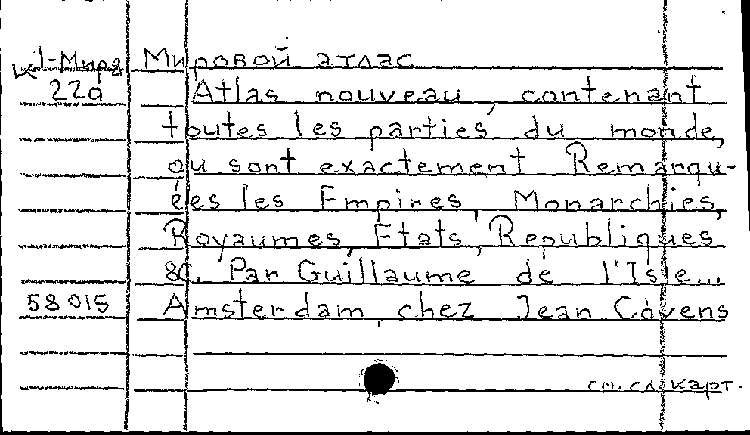 К1-Мира Мировой атлас
22a Atlas nouveau, contenant
toutes les parties du monde,
ou sont exactement Remarqu-
ées les Empires, Monarchies,
Royaumes, Etats, Republiques
&c. Par Guillaume de l'Isle...
58015 Amsterdam, chez Jean Cóvens
см. сл. карт.